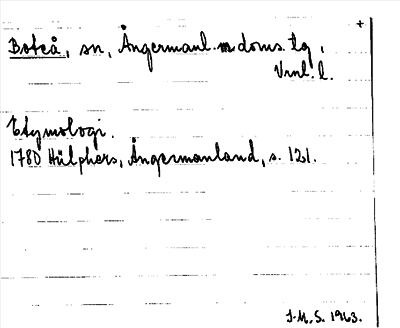 +
Boteå, sn, Ångermanl. m doms. tg,
Vrnl. l.
Etymologi.
1780 Hülphers, Ångermanland, s. 121.
J.M.S. 1963.